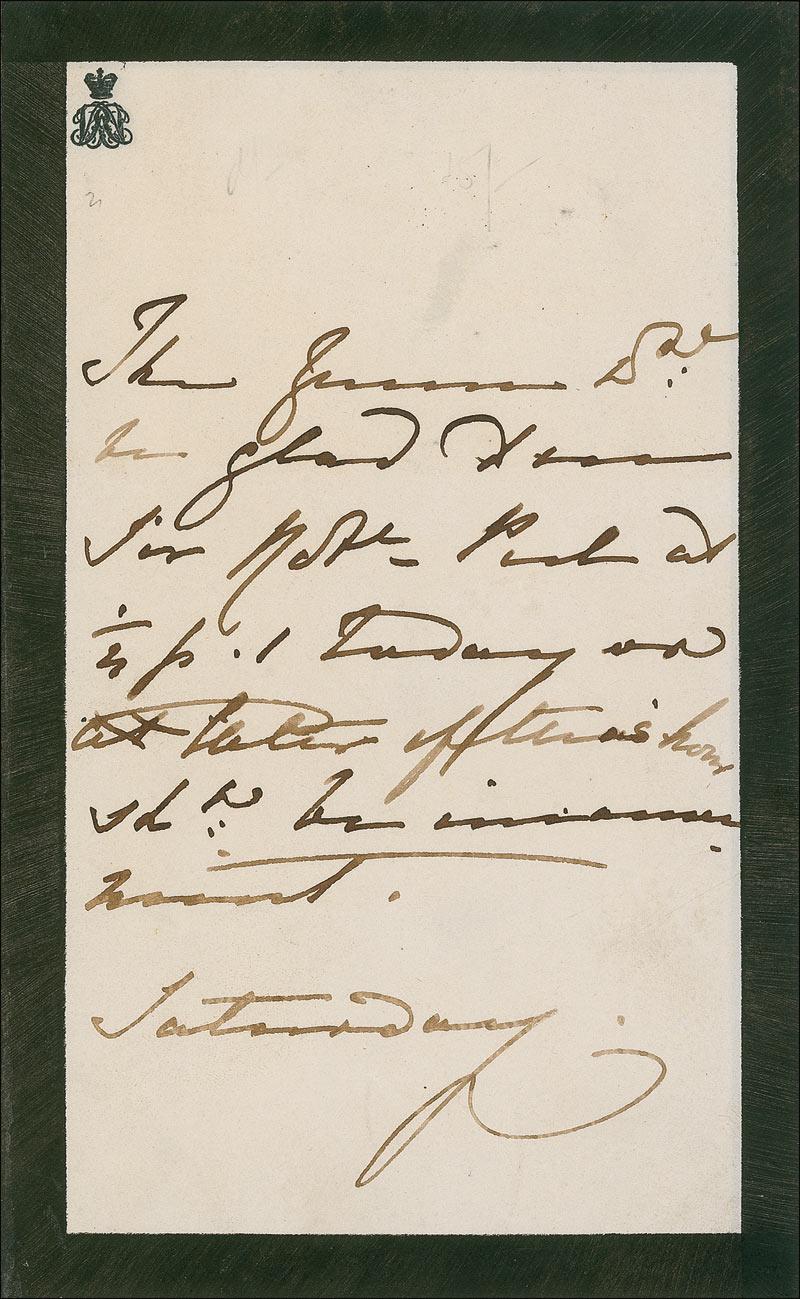 The Queen wd
be glad to see
Sir Robt Peel at
½ p. 1 today or
at later if this hour
shd be inconve-
nient.
Saturday.